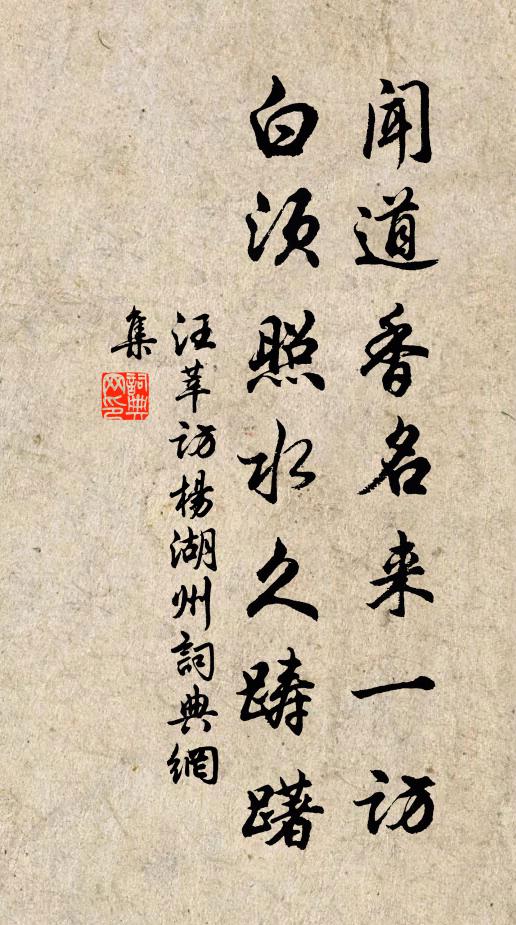 闻道香名来一访
白须照水久踌躇
汪莘访杨湖州词典网
集
词典
网印